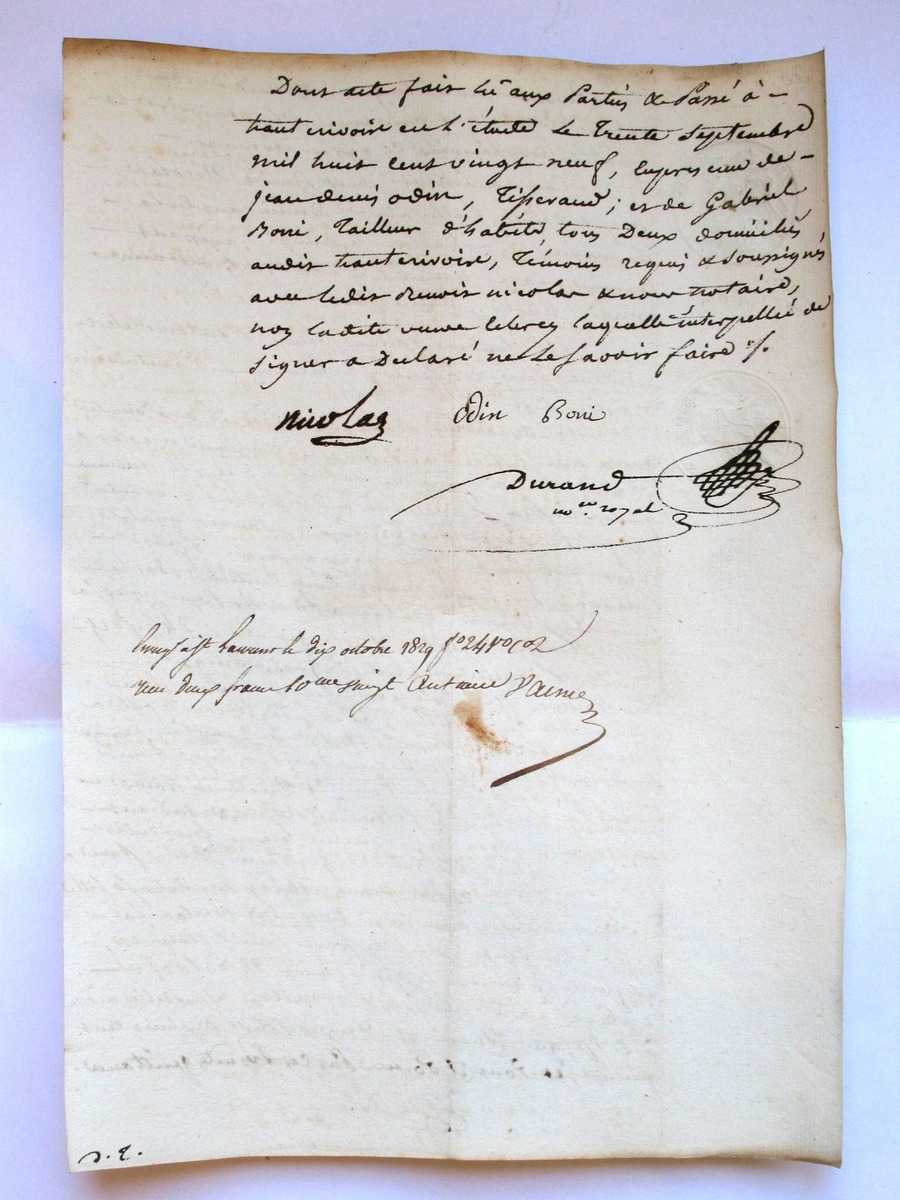 Dont acte fait lu aux Parties & Passé à -
haut rivoire en l'étude Le Trente Septembre
mil huit cent vingt neuf, En presence de -
jean denis odin, Tisserand; et de Gabriel
Boni, Tailleur d'habits tous Deux domiciliés
audit haut rivoire, Témoins requis & Soussignés
avec ledit Benoit nicolas & nous notaire,
non ladite veuve laquelle interpellée de
signer a Déclaré ne le Savoir faire ./.
Nicolas Odin Boni
Durand
nore. royal
le dix octobre 1829 fo 24 Vo C 2
reçu deux francs 10me vingt centimes
D. E.